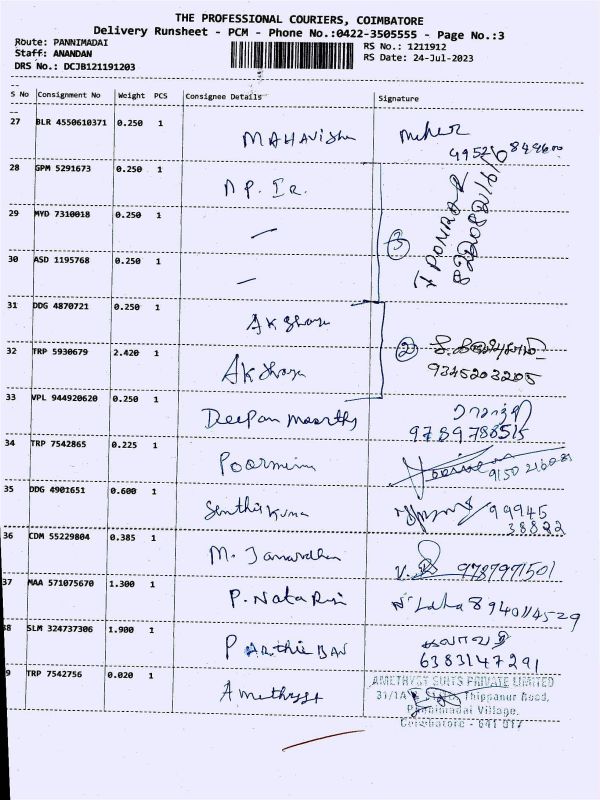 THE PROFESSIONAL COURIERS, COIMBATORE
Delivery Runsheet - PCM - Phone No.:0422-3505555 - Page No.:3
Route: PANNIMADAI
RS No.: 1211912
Staff: ANANDAN
RS Date: 24-Jul-2023
DRS No.: DCJB121191203
S No Consignment No Weight PCS Consignee Details Signature
27 BLR 4550610371 0.250 1 MAHAVishnu
28 GPM 5291673 0.250 1 N P. IR.
29 MYD 7310018 0.250 1 —
③
30 ASD 1195768 0.250 1 —
31 DDG 4870721 0.250 1 Akshaya
32 TRP 5930679 2.420 1 Akshaya ②
9345203205
33 VPL 944920620 0.250 1 Deepan moorthy
9789788515
34 TRP 7542865 0.225 1 Poornima
35 DDG 4901651 0.600 1 Senthil Kumar 99945
38822
36 CDM 55229804 0.385 1 M. Janardhan 9787971501
37 MAA 571075670 1.300 1 P. Nata Rajan
38 SLM 324737306 1.900 1 PARthiBAN
6383147291
9 TRP 7542756 0.020 1 Amethyst
AMETHYST SUITS PRIVATE LIMITED
31/1A Thippanur Road,
Pannimadai Village,
Coimbatore - 641 017